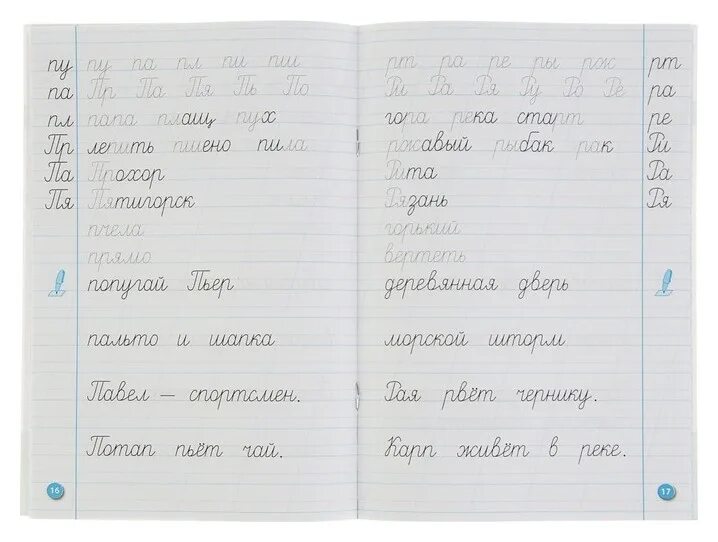 пу пу па пл пи пш
па Пр Па Пя Пь По
пл папа плащ пух
Пр лепить пшено пила
Па Прохор
Пя Пятигорск
пчела
прямо
попугай Пьер
пальто и шапка
Павел — спортсмен.
Потап пьёт чай.
16
рт ра ре ры рж рт
Ри Ра Ря Ру Ро Рё ра
гора река старт ре
ржавый рыбак рак Ри
Рита Ра
Рязань Ря
горький
вертеть
деревянная дверь
морской шторм
Рая рвёт чернику.
Карп живёт в реке.
17